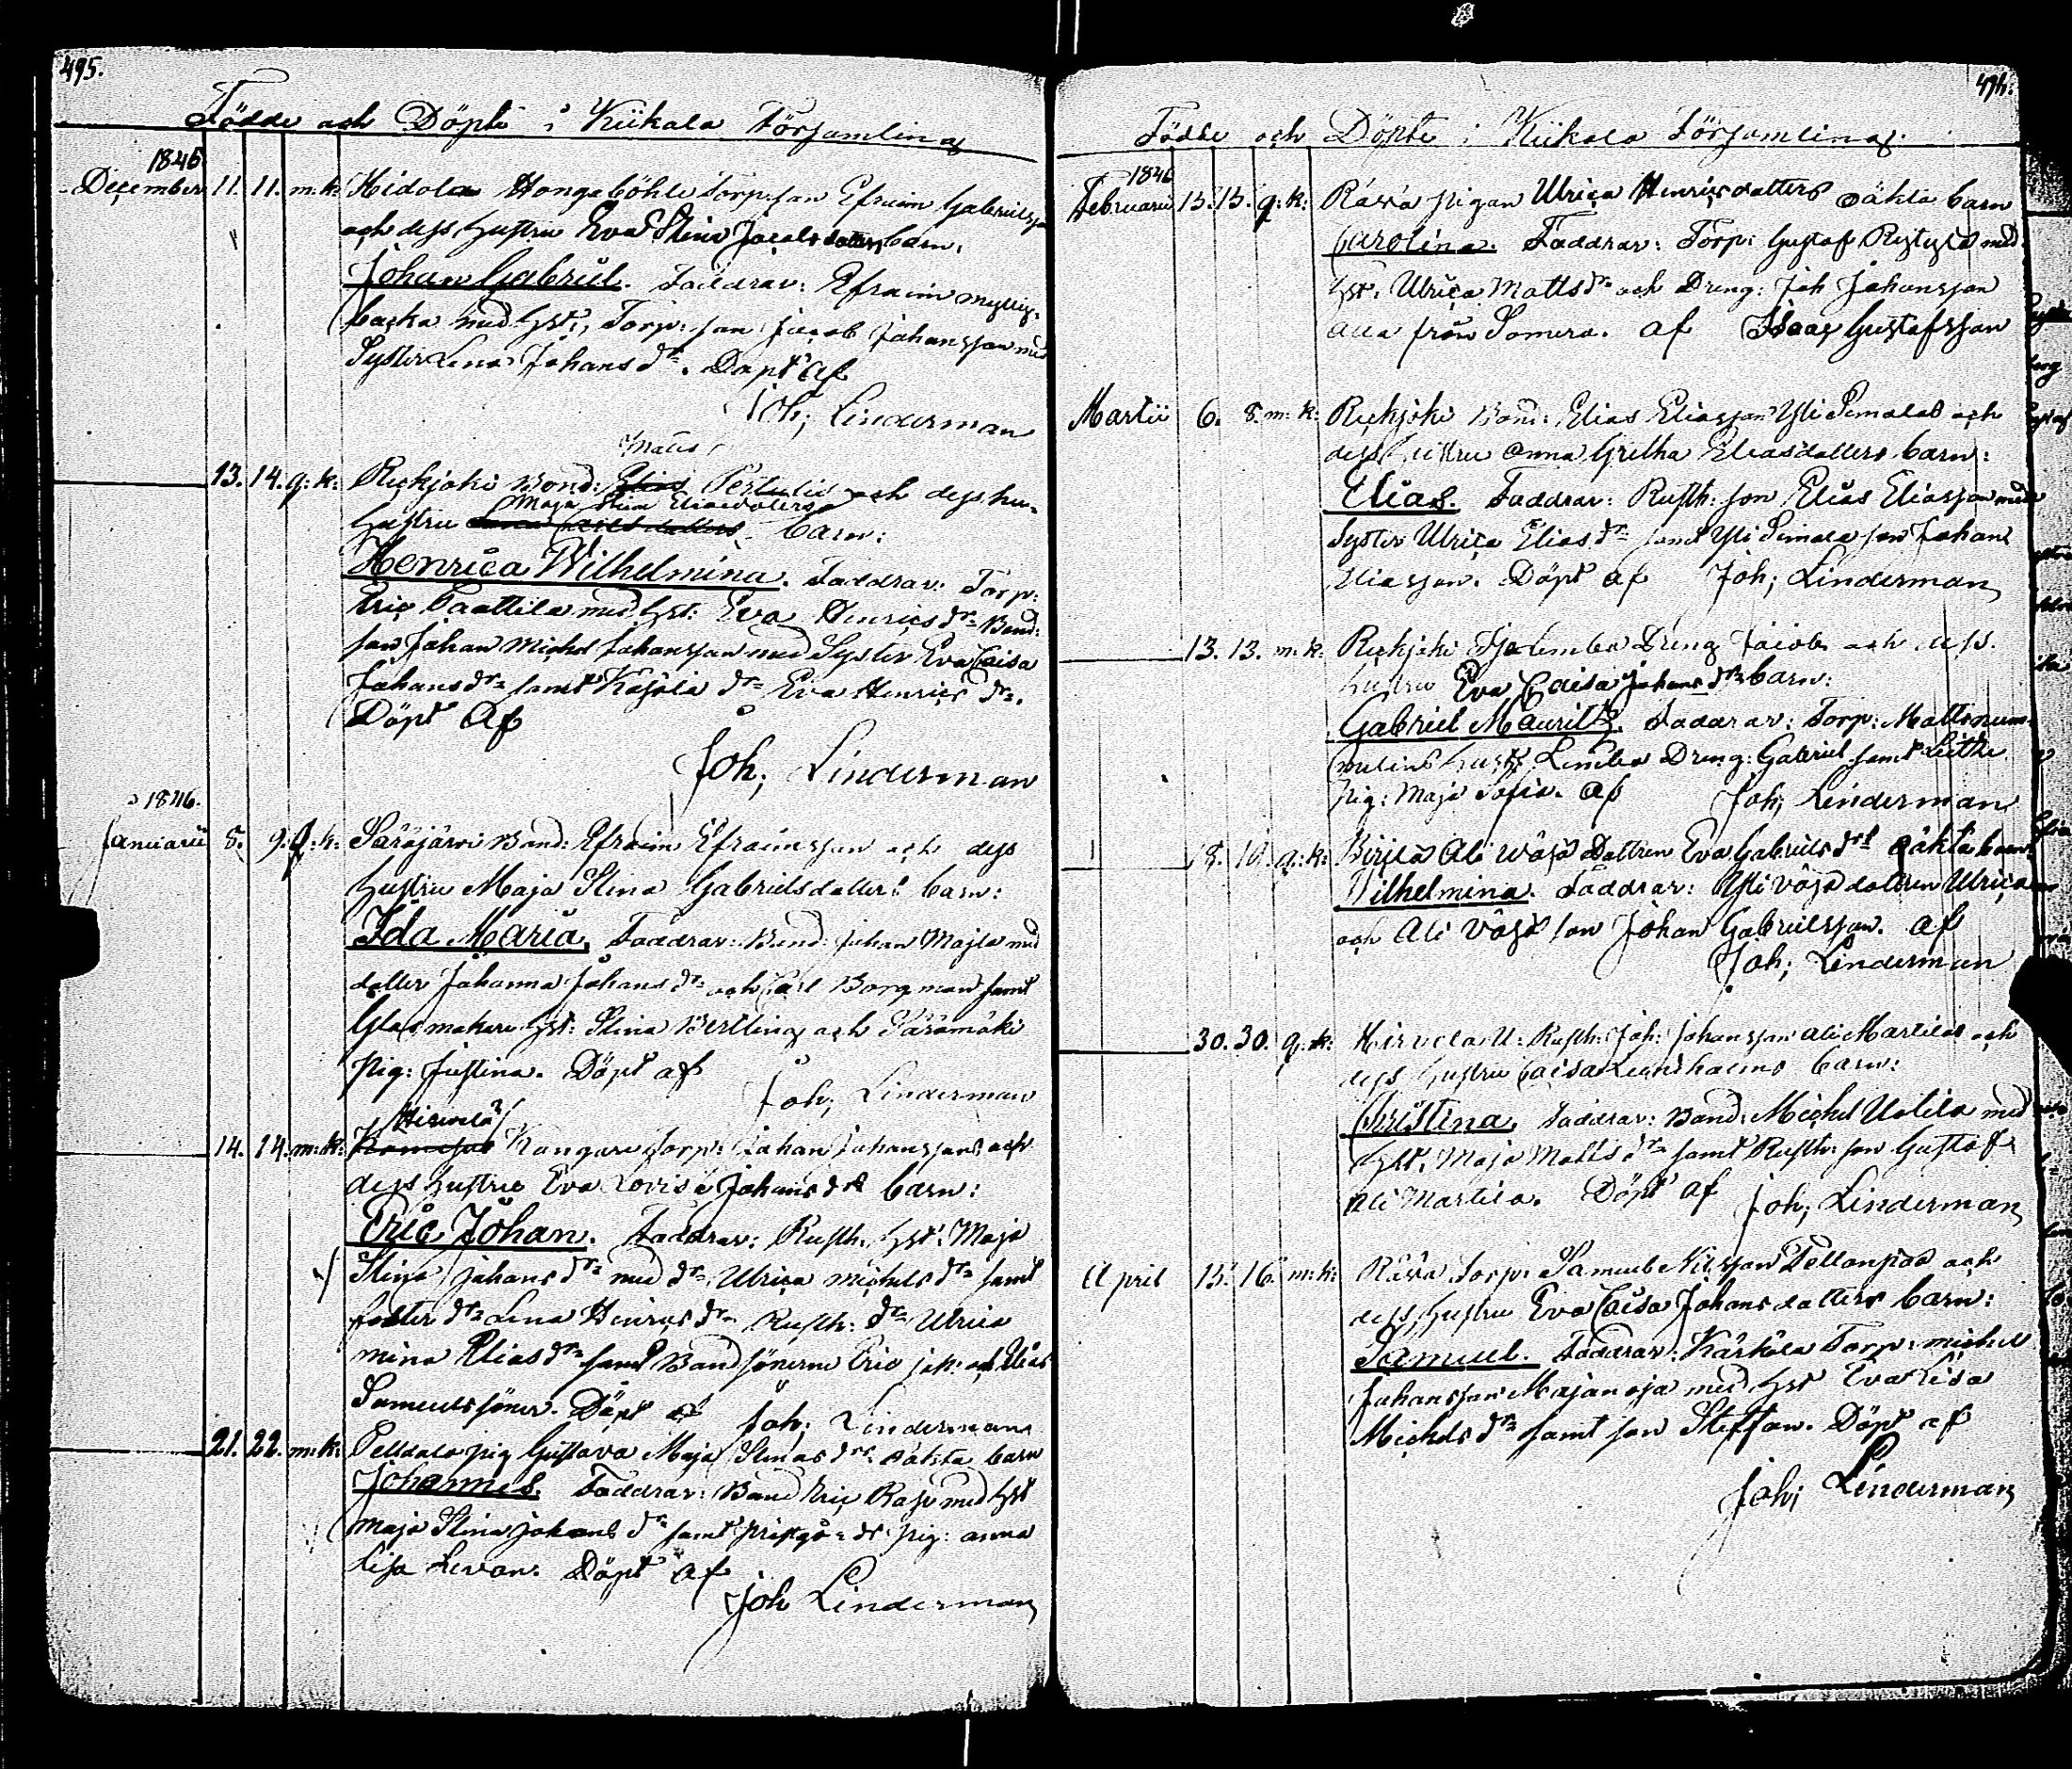 495.
Födde och Döpte i Kiikala Församling
1845
December 11. 11. m: k: Hidola Hongaböhle Torp: son Efraim Gabrielsson
och dess hustru Eva Stina Jacobsdotters barn:
Johan Gabriel. Faddrar: Efraim
backa med hst:, Torp: son Jacob Johansson med
Syster Lena Johans dr. Döpt af
Joh; Linderman
Matts
13. 14. q: k: Rekijoki Bond: Elias Perttulas och dess hu-
Maja Stina Eliædotters
hustru barn:
Henrica Wilhelmina. Faddrar: Torp:
Eric Paattila med hst: Eva Henrics dr Bond:
son Johan Michel Johansson med Syster Eva Caisa
Johans dr samt dr Eva Henrics dr.
Döpt af
Joh; Linderman
1846.
Januarii 8. 9. q: k: Saräjärvi Bond: Efraim Efraimsson och dess
hustru Maja Stina Gabrielsdotters barn:
Ida Maria. Faddrar: Bond: Johan Majla med
dotter Johanna Johans dr och Carl Borgman samt
Glasmakare hst: Stina Bertling och Säromäki
Pig: Justina. Döpt af
Joh; Linderman
Hirvelä
14. 14. m: k: Kangare Torp: Johan Johanssons och
dess hustru Eva Lovisa Johans drs barn:
Eric Johan. Faddrar: Rusth. hst: Maja
Stina Johans dr med dr Ulrica Michels dr samt
foster dr Lena Henrics dr Rusth: dr Ulrica
mina Elias dr samt Bond sönerne Eric Joh: och Elias
Samuels söner. Döpt af Joh; Linderman
21. 22. m: k: Pelldala pig Gustava Maja Stinas drs oäkta barn
Johannes. Faddrar: Bond Eric Rasu med hst
Maja Stina Johans dr samt pig: Anna
Lisa Levon. Döpt af
Joh Linderman
Födde och Döpte i Kiikala Församling.
1846
Februarii 15. 15. q: k: Räsä pigan Ulrica Henricsdotters oäkta barn
Carolina. Faddrar: Torp: Gustaf med
hst. Ulrica Matts dr och Dreng: Joh Johansson
alla från Somero. af Isaac Gustafsson
Martii 6. 8. m: k: Rekijoki Bond: Elias Eliasson Yli Pimalas och
dess hustru Anna Gretha Eliasdotters barn:
Elias. Faddrar: Rusth: son Elias Eliasson med
Syster Ulrica Elias dr samt Yli Pimala son Johan
Eliasson. Döpt af Joh; Linderman
13. 13. m: k: Rekijoki Dreng Jacob och dess
hustru Eva Caisa Johans drs barn:
Gabriel Mauritz. Faddrar: Torp: Matts
Dreng: Gabriel samt
Pig: Maja Sofia. af Joh; Linderman
18. 19. q: k: Ali Dottren Eva Gabriels drs oäkta barn
Wilhelmina. Faddrar: Yli dottren Ulrica
och Ali son Johan Gabrielsson. af
Joh; Linderman
30. 30. q: k: Hirvela U: Rusth: Joh: Johansson Ali Martilas och
dess hustru Caisa Lundholms barn:
Christina. Faddrar: Bond: Michel Uotila med
hst: Maja Matts dr samt Rusth: son Gustaf
Ali Martila. Döpt af Joh; Linderman
April 15. 16. m: k: Räsä Torp: Samuel Nilsson Pellonpäs och
dess hustru Eva Caisa Johansdotters barn:
Samuel. Faddrar: Kärkäla Torp: Michel
Johansson Majanoja med hst Eva Lisa
Michels dr samt son Steffan. Döpt af
Joh; Linderman